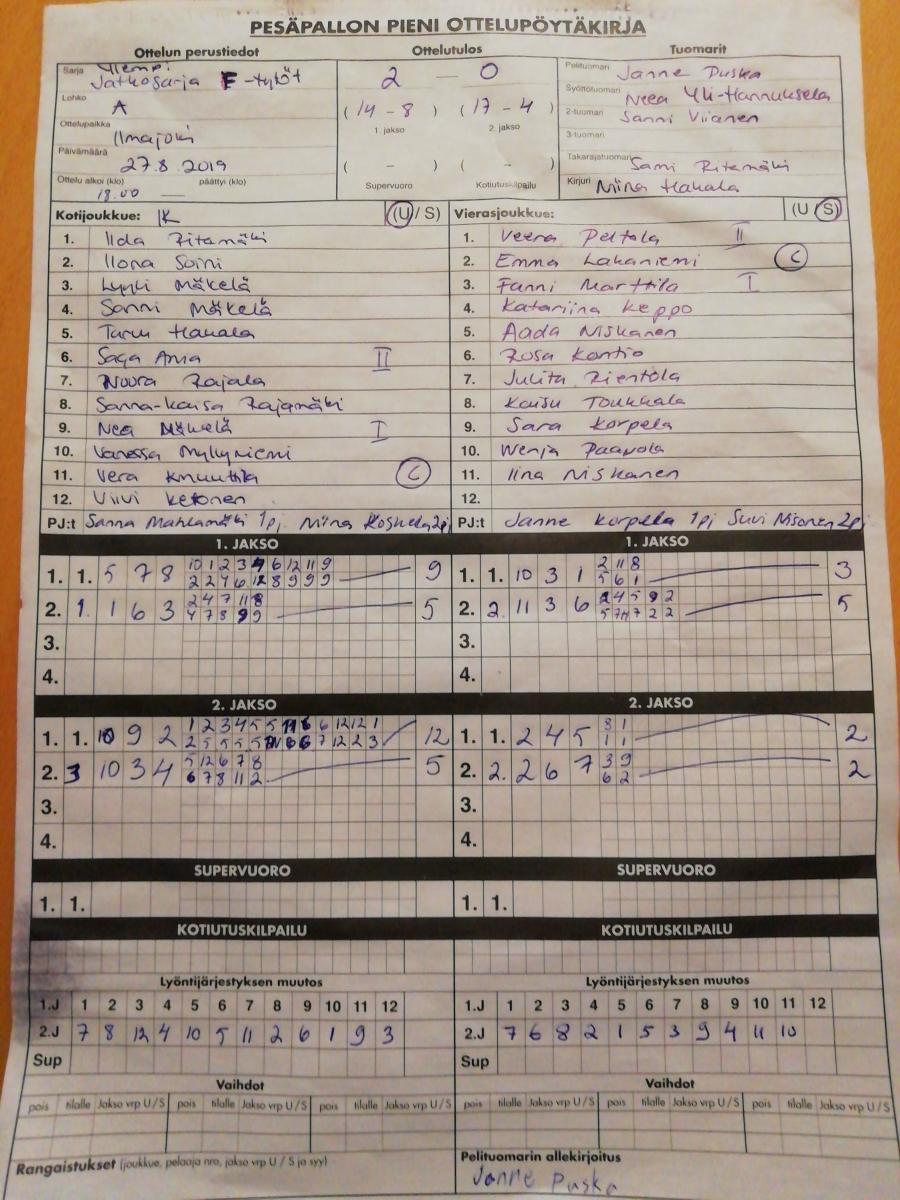 PESÄPALLON PIENI OTTELUPÖYTÄKIRJA
Ottelun perustiedot Ottelutulos Tuomarit
Sarja Ylempi Jatkosarja F-tytöt
Lohko A
Ottelupaikka Ilmajoki
Päivämäärä 27.8.2019
Ottelu alkoi (klo) 18.00 päättyi (klo)
2 — 0
(14 - 8) (17 - 4)
1. jakso 2. jakso
( - ) ( - )
Supervuoro Kotiutuskilpailu
Pelituomari Janne Puska
Syöttötuomari Neea Yli-Hannuksela
2-tuomari Sanni Viianen
3-tuomari
Takarajatuomari Sami Ritamäki
Kirjuri Niina Hakala
Kotijoukkue: IK (U / S) Vierasjoukkue: (U / S)
1. Iida Ritamäki
2. Ilona Soini
3. Lyyli Mäkelä
4. Sanni Mäkelä
5. Taru Hakala
6. Saga Ania II
7. Noora Rajala
8. Sanna-Kaisa Rajamäki
9. Nea Mäkelä I
10. Vanessa Myllyniemi
11. Vera Knuuttila C
12. Viivi Ketonen
PJ:t Sanna Mahlamäki 1pj. Niina Koskela 2pj
1. Veera Peltola II
2. Emma Lakaniemi C
3. Fanni Marttila I
4. Katariina Keppo
5. Aada Niskanen
6. Rosa Kontio
7. Julita Rientola
8. Kaisu Toukkala
9. Sara Korpela
10. Wenja Paavola
11. Iina Niskanen
12.
PJ:t Janne Korpela 1pj Suvi Nisonen 2pj
1. JAKSO 1. JAKSO
1. 1. 5 7 8 10 1 2 3 4 6 12 11 9 9
2 2 4 6 12 8 9 9 9
2. 1. 1 6 3 2 4 7 11 8 5
4 7 8 9 9
3.
4.
1. 1. 10 3 1 2 11 8 3
5 6 1
2. 2. 11 3 6 2 4 5 9 2 5
5 7 7 2 2
3.
4.
2. JAKSO 2. JAKSO
1. 1. 10 9 2 1 2 3 4 5 5 11 6 6 12 12 1 12
2 5 5 5 5 11 6 6 7 12 2 3
2. 3 10 3 4 5 12 6 7 8 5
6 7 8 11 2
3.
4.
1. 1. 2 4 5 8 1 2
1 1
2. 2. 2 6 7 3 9 2
6 2
3.
4.
SUPERVUORO SUPERVUORO
1. 1. 1. 1.
KOTIUTUSKILPAILU KOTIUTUSKILPAILU
Lyöntijärjestyksen muutos Lyöntijärjestyksen muutos
1.J 1 2 3 4 5 6 7 8 9 10 11 12 1.J 1 2 3 4 5 6 7 8 9 10 11 12
2.J 7 8 12 4 10 5 11 2 6 1 9 3 2.J 7 6 8 2 1 5 3 9 4 11 10
Sup Sup
Vaihdot Vaihdot
pois tilalle Jakso vrp U / S pois tilalle Jakso vrp U / S pois tilalle Jakso vrp U / S pois tilalle Jakso vrp U / S pois tilalle Jakso vrp U / S pois tilalle Jakso vrp U / S
Rangaistukset (joukkue, pelaaja nro, jakso vrp U / S ja syy)
Pelituomarin allekirjoitus
Janne Puska